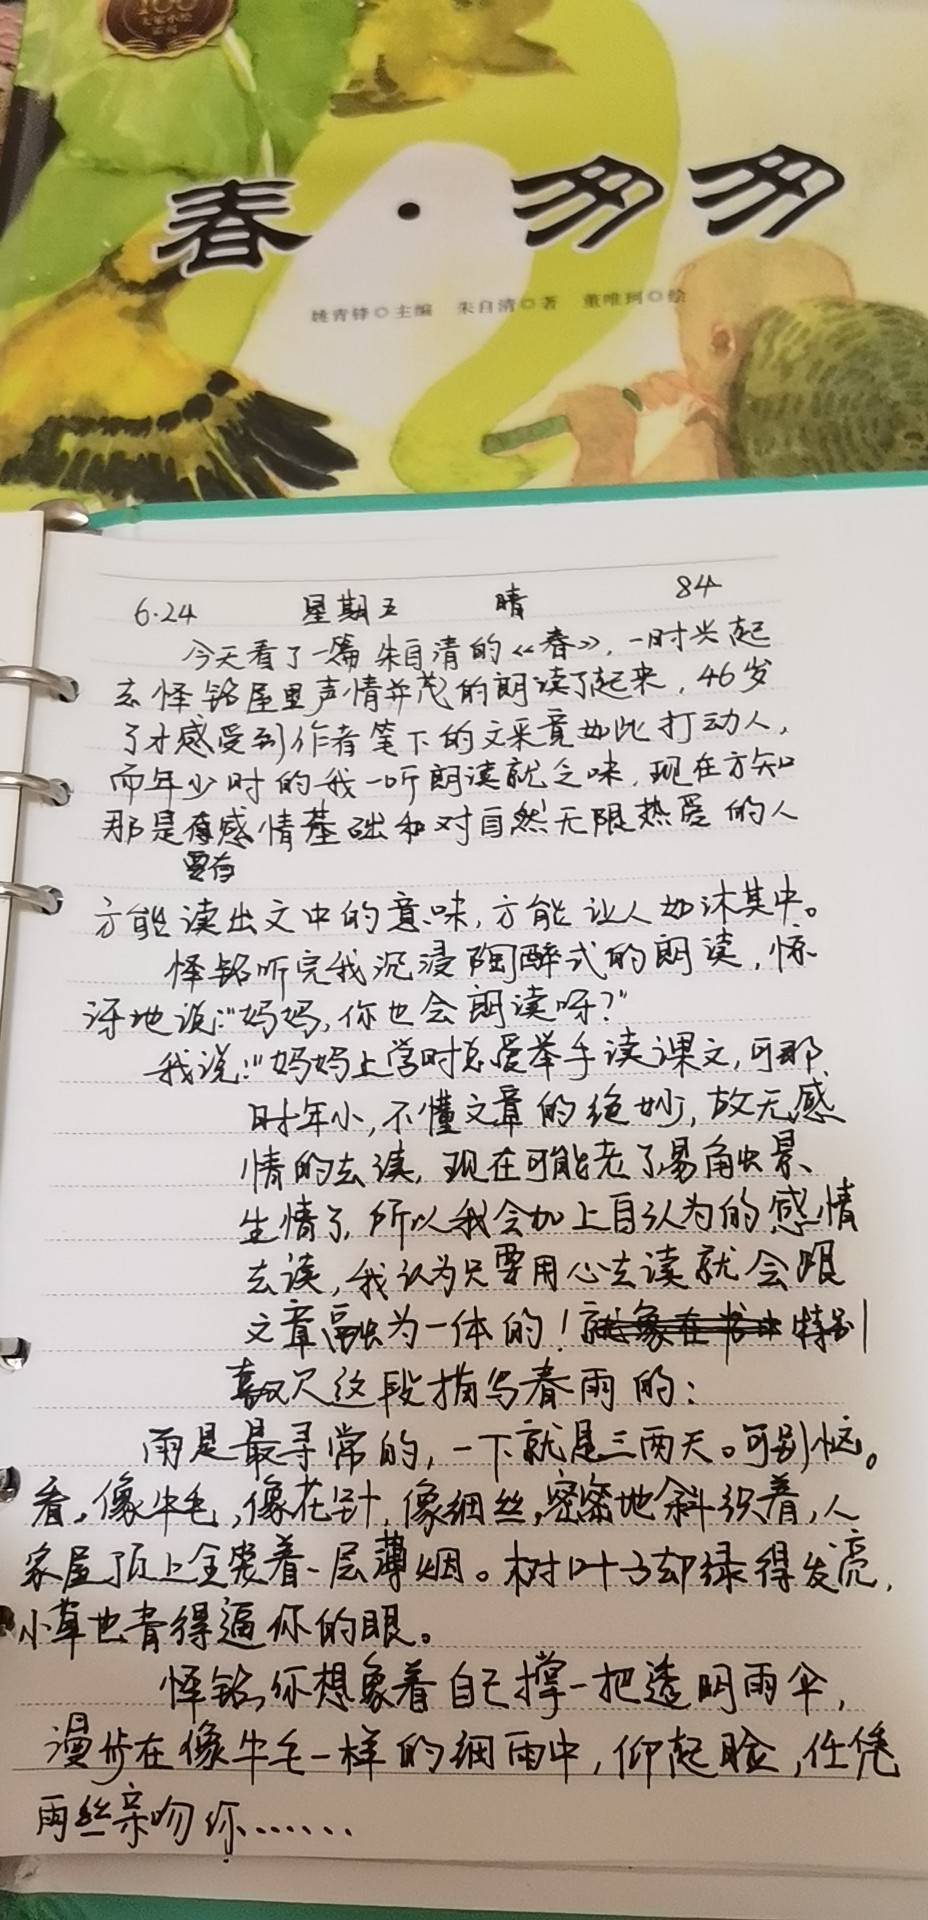 春·匆匆
姚青锋◎主编 朱自清◎著 董唯珂◎绘
6·24 星期五 晴 84
今天看了一篇朱自清的《春》,一时兴起
去怿铭屋里声情并茂的朗读了起来,46岁
了才感受到作者笔下的文采竟如此打动人,
而年少时的我一听朗读就乏味,现在方知
那是有感情基础和对自然无限热爱的人
要有
方能读出文中的意味,方能让人如沐其中。
怿铭听完我沉浸陶醉式的朗读,惊
讶地说:"妈妈,你也会朗读呀?"
我说:"妈妈上学时总爱举手读课文,可那
时年小,不懂文章的绝妙,故无感
情的去读,现在可能老了易触景
生情了,所以我会加上自认为的感情
去读,我认为只要用心去读就会跟
文章融为一体的!就象在书中特别
喜欢这段描写春雨的:
雨是最寻常的,一下就是三两天。可别恼。
看,像牛毛,像花针,像细丝,密密地斜织着,人
家屋顶上全笼着一层薄烟。树叶子却绿得发亮,
小草也青得逼你的眼。
怿铭,你想象着自己撑一把透明雨伞,
漫步在像牛毛一样的细雨中,仰起脸,任凭
雨丝亲吻你……